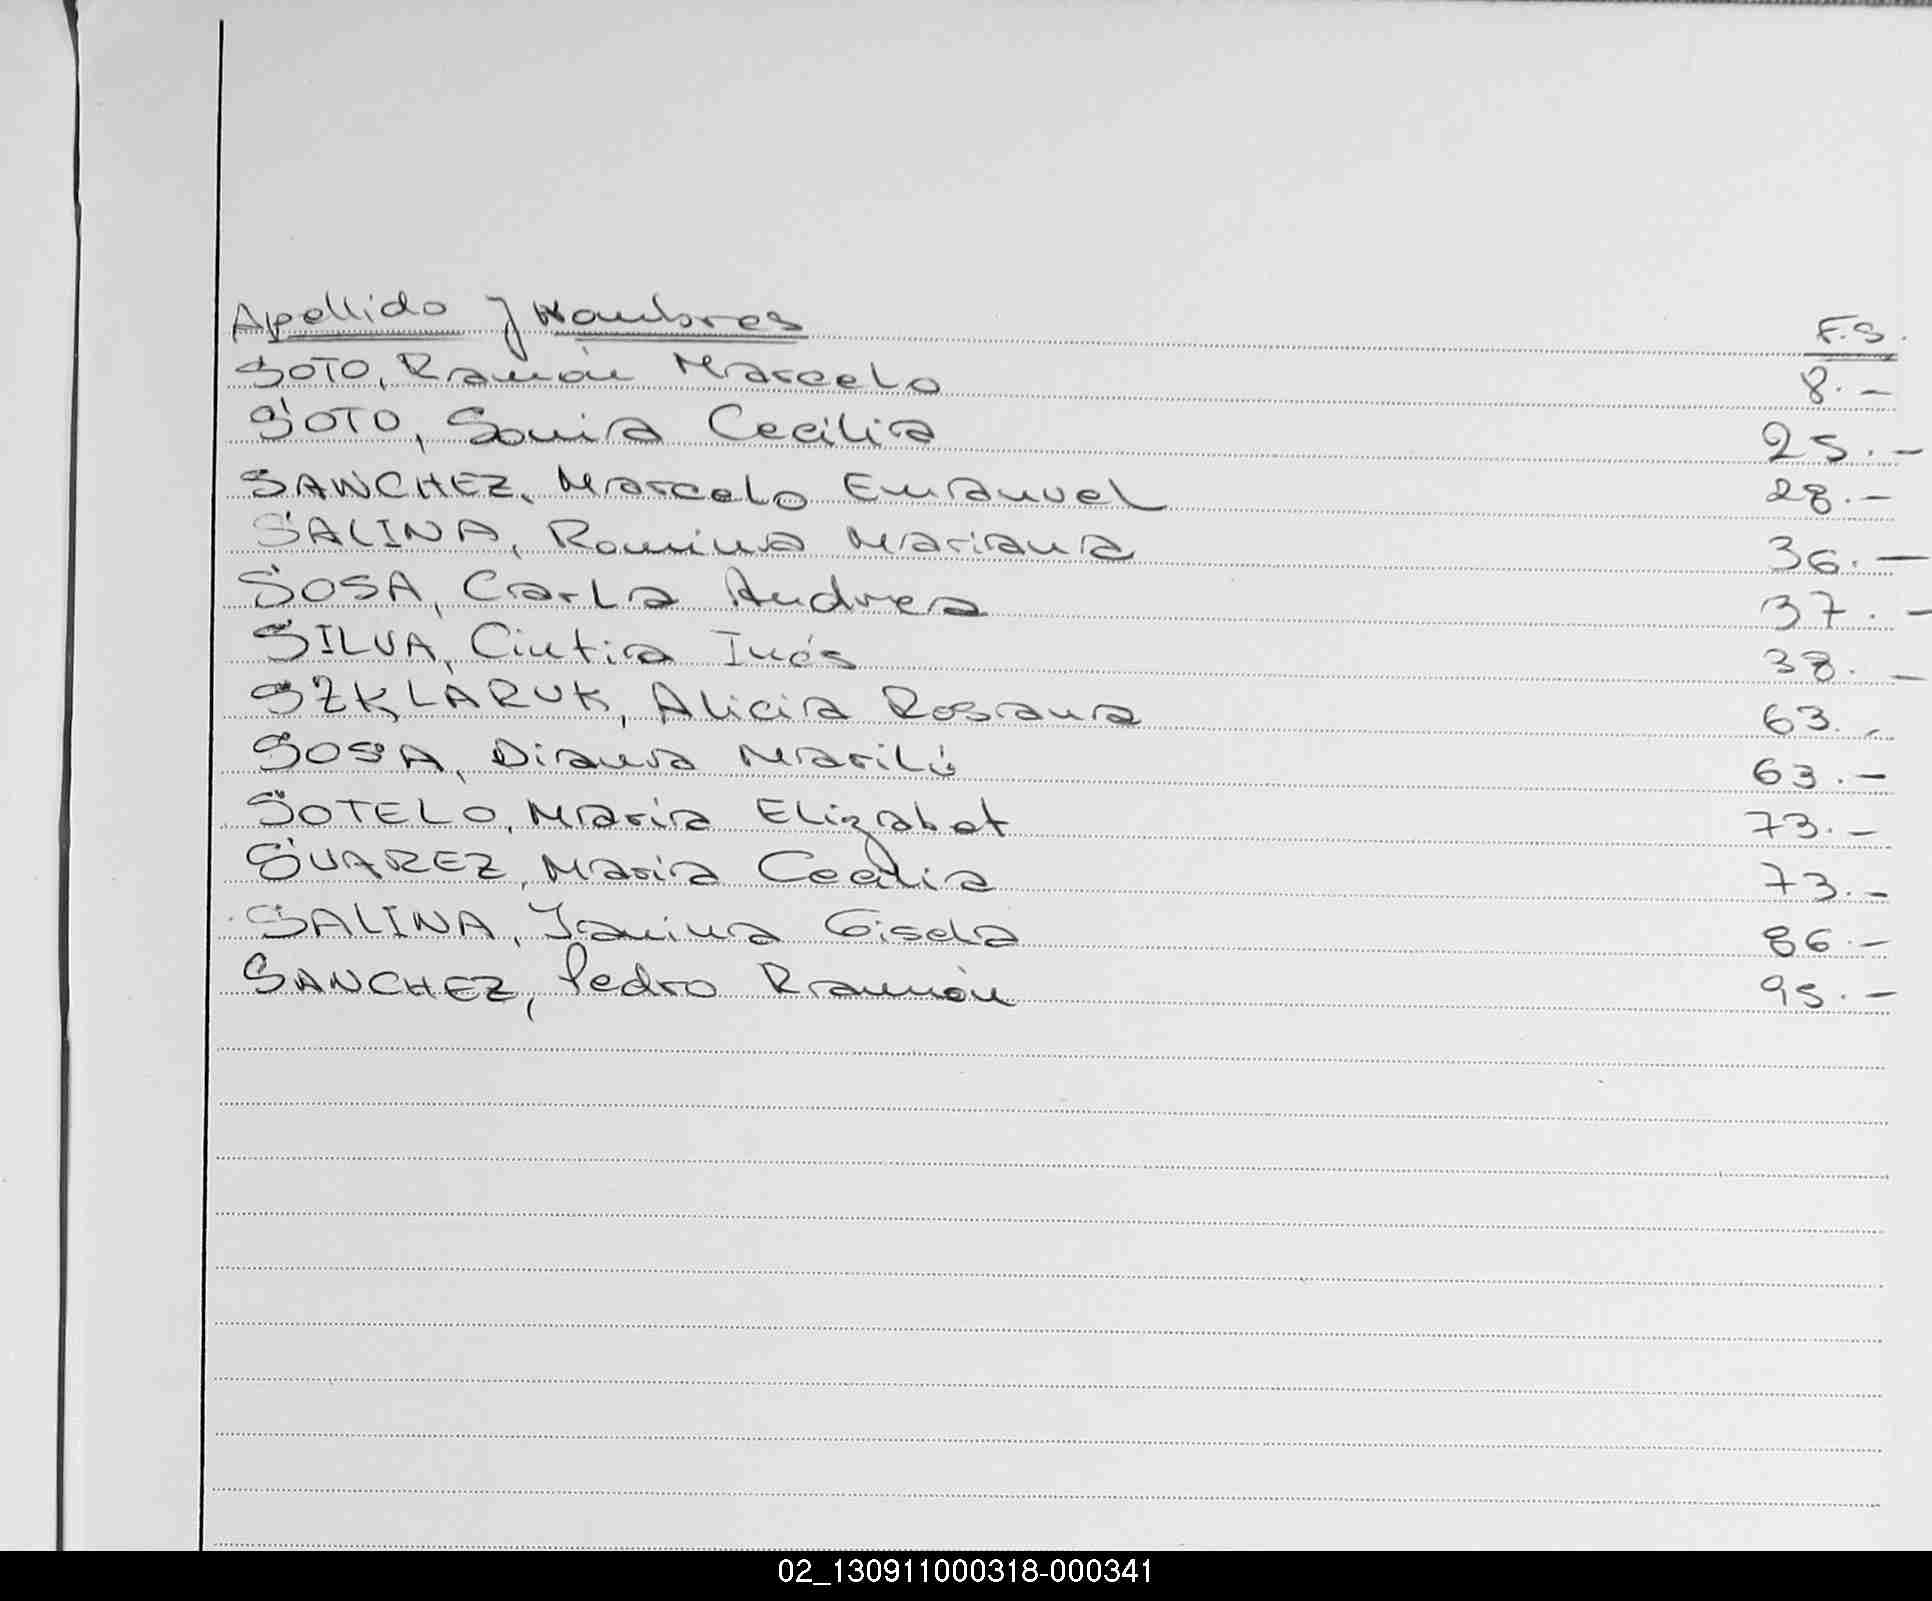 Apellido y Nombres F.S.
SOTO, Ramón Marcelo 8.-
SOTO, Sonia Cecilia 25.-
SANCHEZ, Marcelo Emanuel 28.-
SALINA, Romina Mariana 36.-
SOSA, Carla Andrea 37.-
SILVA, Cintia Inés 38.-
SZKLARUK, Alicia Rosana 63.-
SOSA, Diana Marilú 63.-
SOTELO, Maria Elizabet 73.-
SUAREZ, Maria Cecilia 73.-
SALINA, Yanina Gisela 86.-
SANCHEZ, Pedro Ramón 95.-
02_130911000318-000341